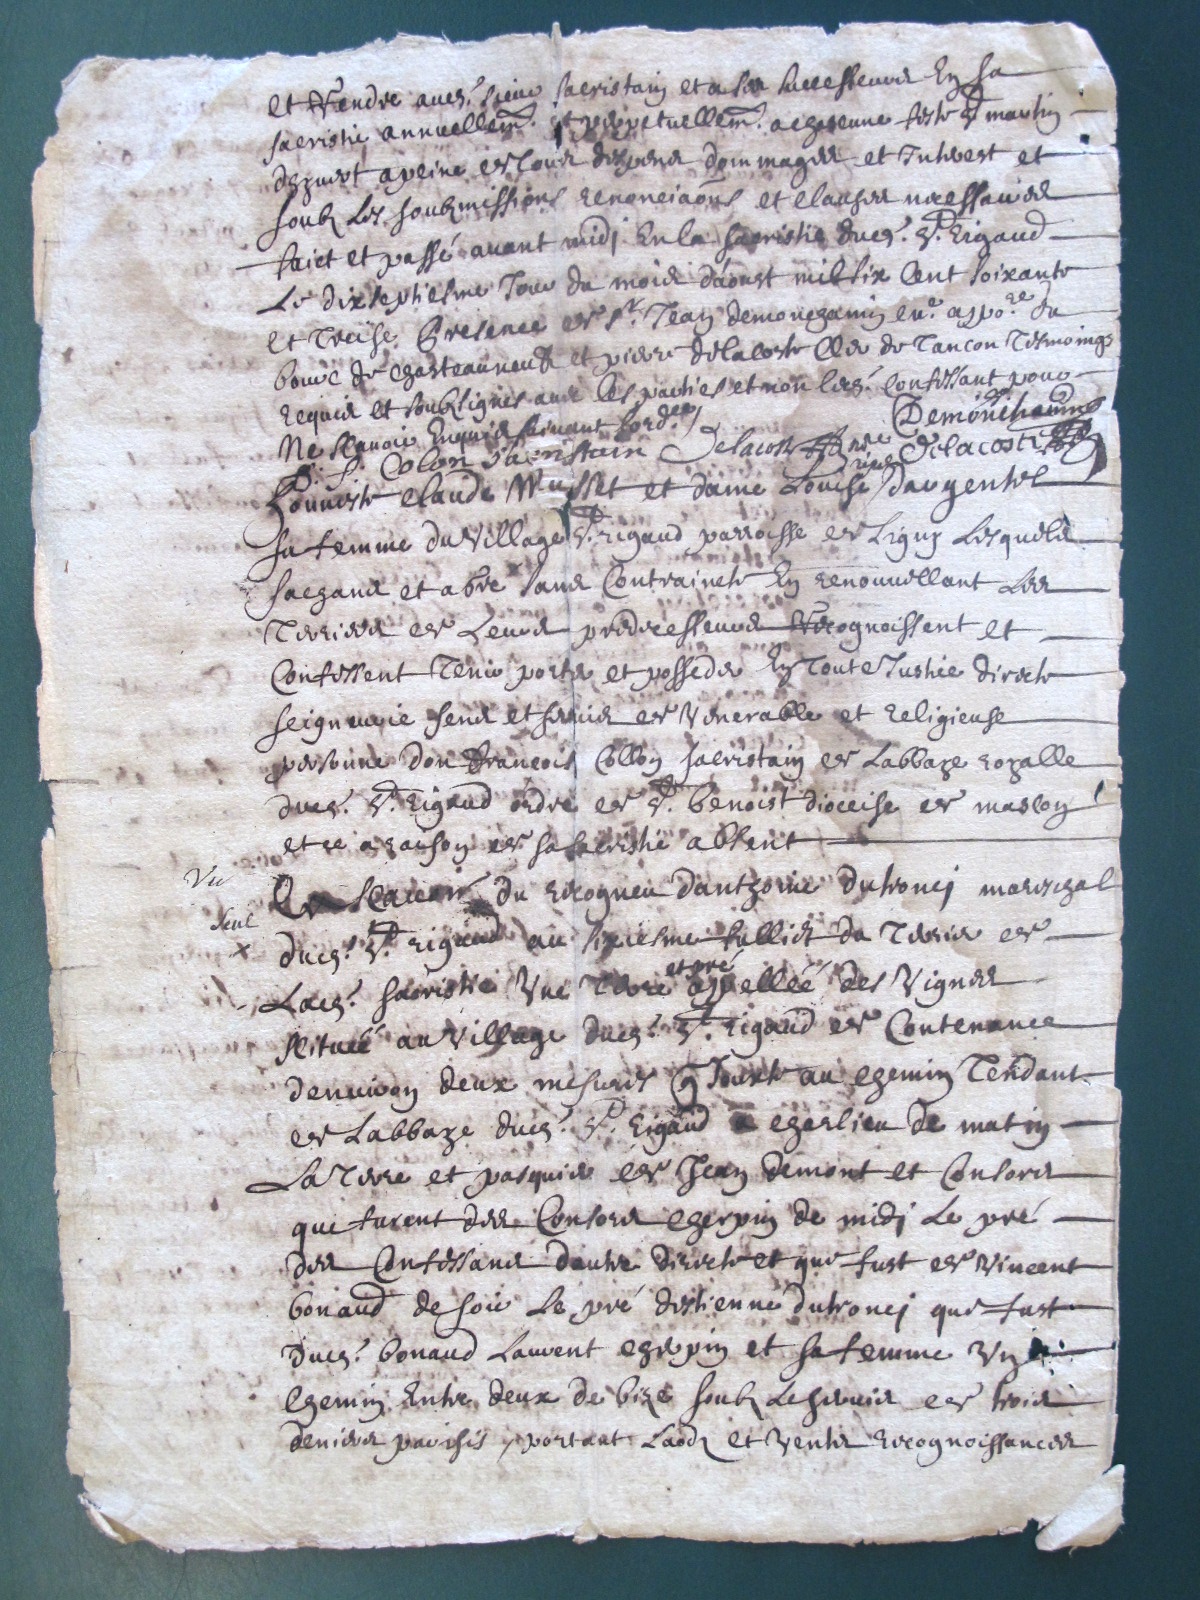 et Rendre aud. sieur sacristain et a ses successeurs En sa
sacristie annuellem. et perpetuellem. a chacune feste St martin
dhyvert a peine de tous despens dommages et Interest et
soubz les soubzmissions renonciaons et clauses necessaires
faict et passé avant midj En la sacristie dud. St. Rigaud
Le dixseptiesme Jour du mois daoust mil six Cent soixante
et Treise Presence de Sr. Jean demonchanin
bourc de chasteauneuf et pierre delacoste de Tancon Tesmoings
requis et soubsignes avec les parties et non led. Confessant pour
Ne scavoir Enquis suivant lord.ce
Demonchanin
D. f. Colon Sacristain Delacoste Delacoste
honneste claude Musset et dame Louise dargentel
sa femme du village St. rigaud parroisse de Ligny Lesquels
sachans et a bre sans Contraincte En renouvellant Les
Terriers de Leurs predecesseurs Recognoissent et
Confessent Tenir porter et posseder En Toute Justice directe
seigneurie sens et servis de Venerable et religieuse
personne don francois Collon sacristain de Labbaye royalle
dud. St. Rigaud ordre de St. benoist dioccise de mascon
et ce a raison de sa sacristie absent
Vu
du recogneu danthoine dutroncj mareschal
seul
x
dud. St. rigaud au sixiesme fullict du Terrier de
Lad. sacristie Une Terre et pré appellée des Vignes
scituée au Village dud. St. Rigaud de Contenance
denviron deux mesures Jouxte au chemin Tendant
de Labbaye dud. St. Rigaud a charlieu de matin
La Terre et pasquier de Jean demont et Consors
que furent des Consors cherpin de midj Le pré
des Confessans dautre directe et que fust de Vincent
bonaud de soir Le pré destienne dutroncj que fust
dud. bonaud Laurent cherpin et sa femme Un
Chemin Entre deux de bize soubz Le servis de trois
deniers parisis portant Laodz et Ventes recognoissances